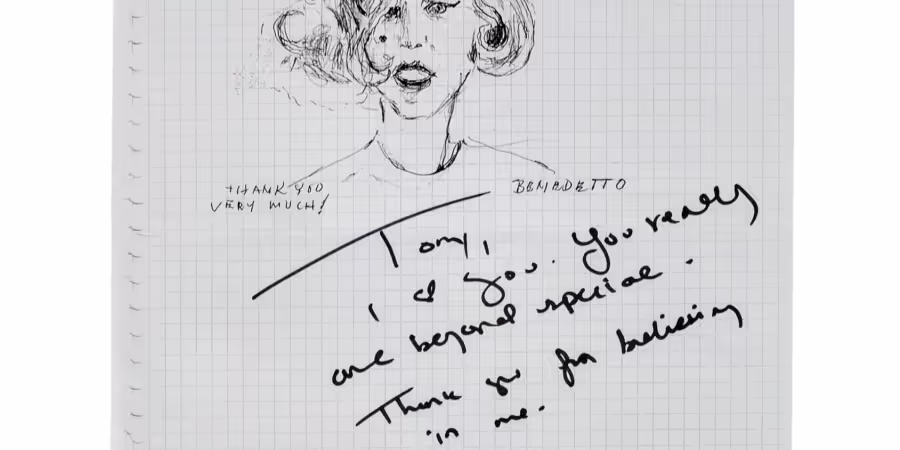 THANK YOU
VERY MUCH!
BENEDETTO
Tony,
I ♥ you. You really
are beyond special.
Thank you for believing
in me.